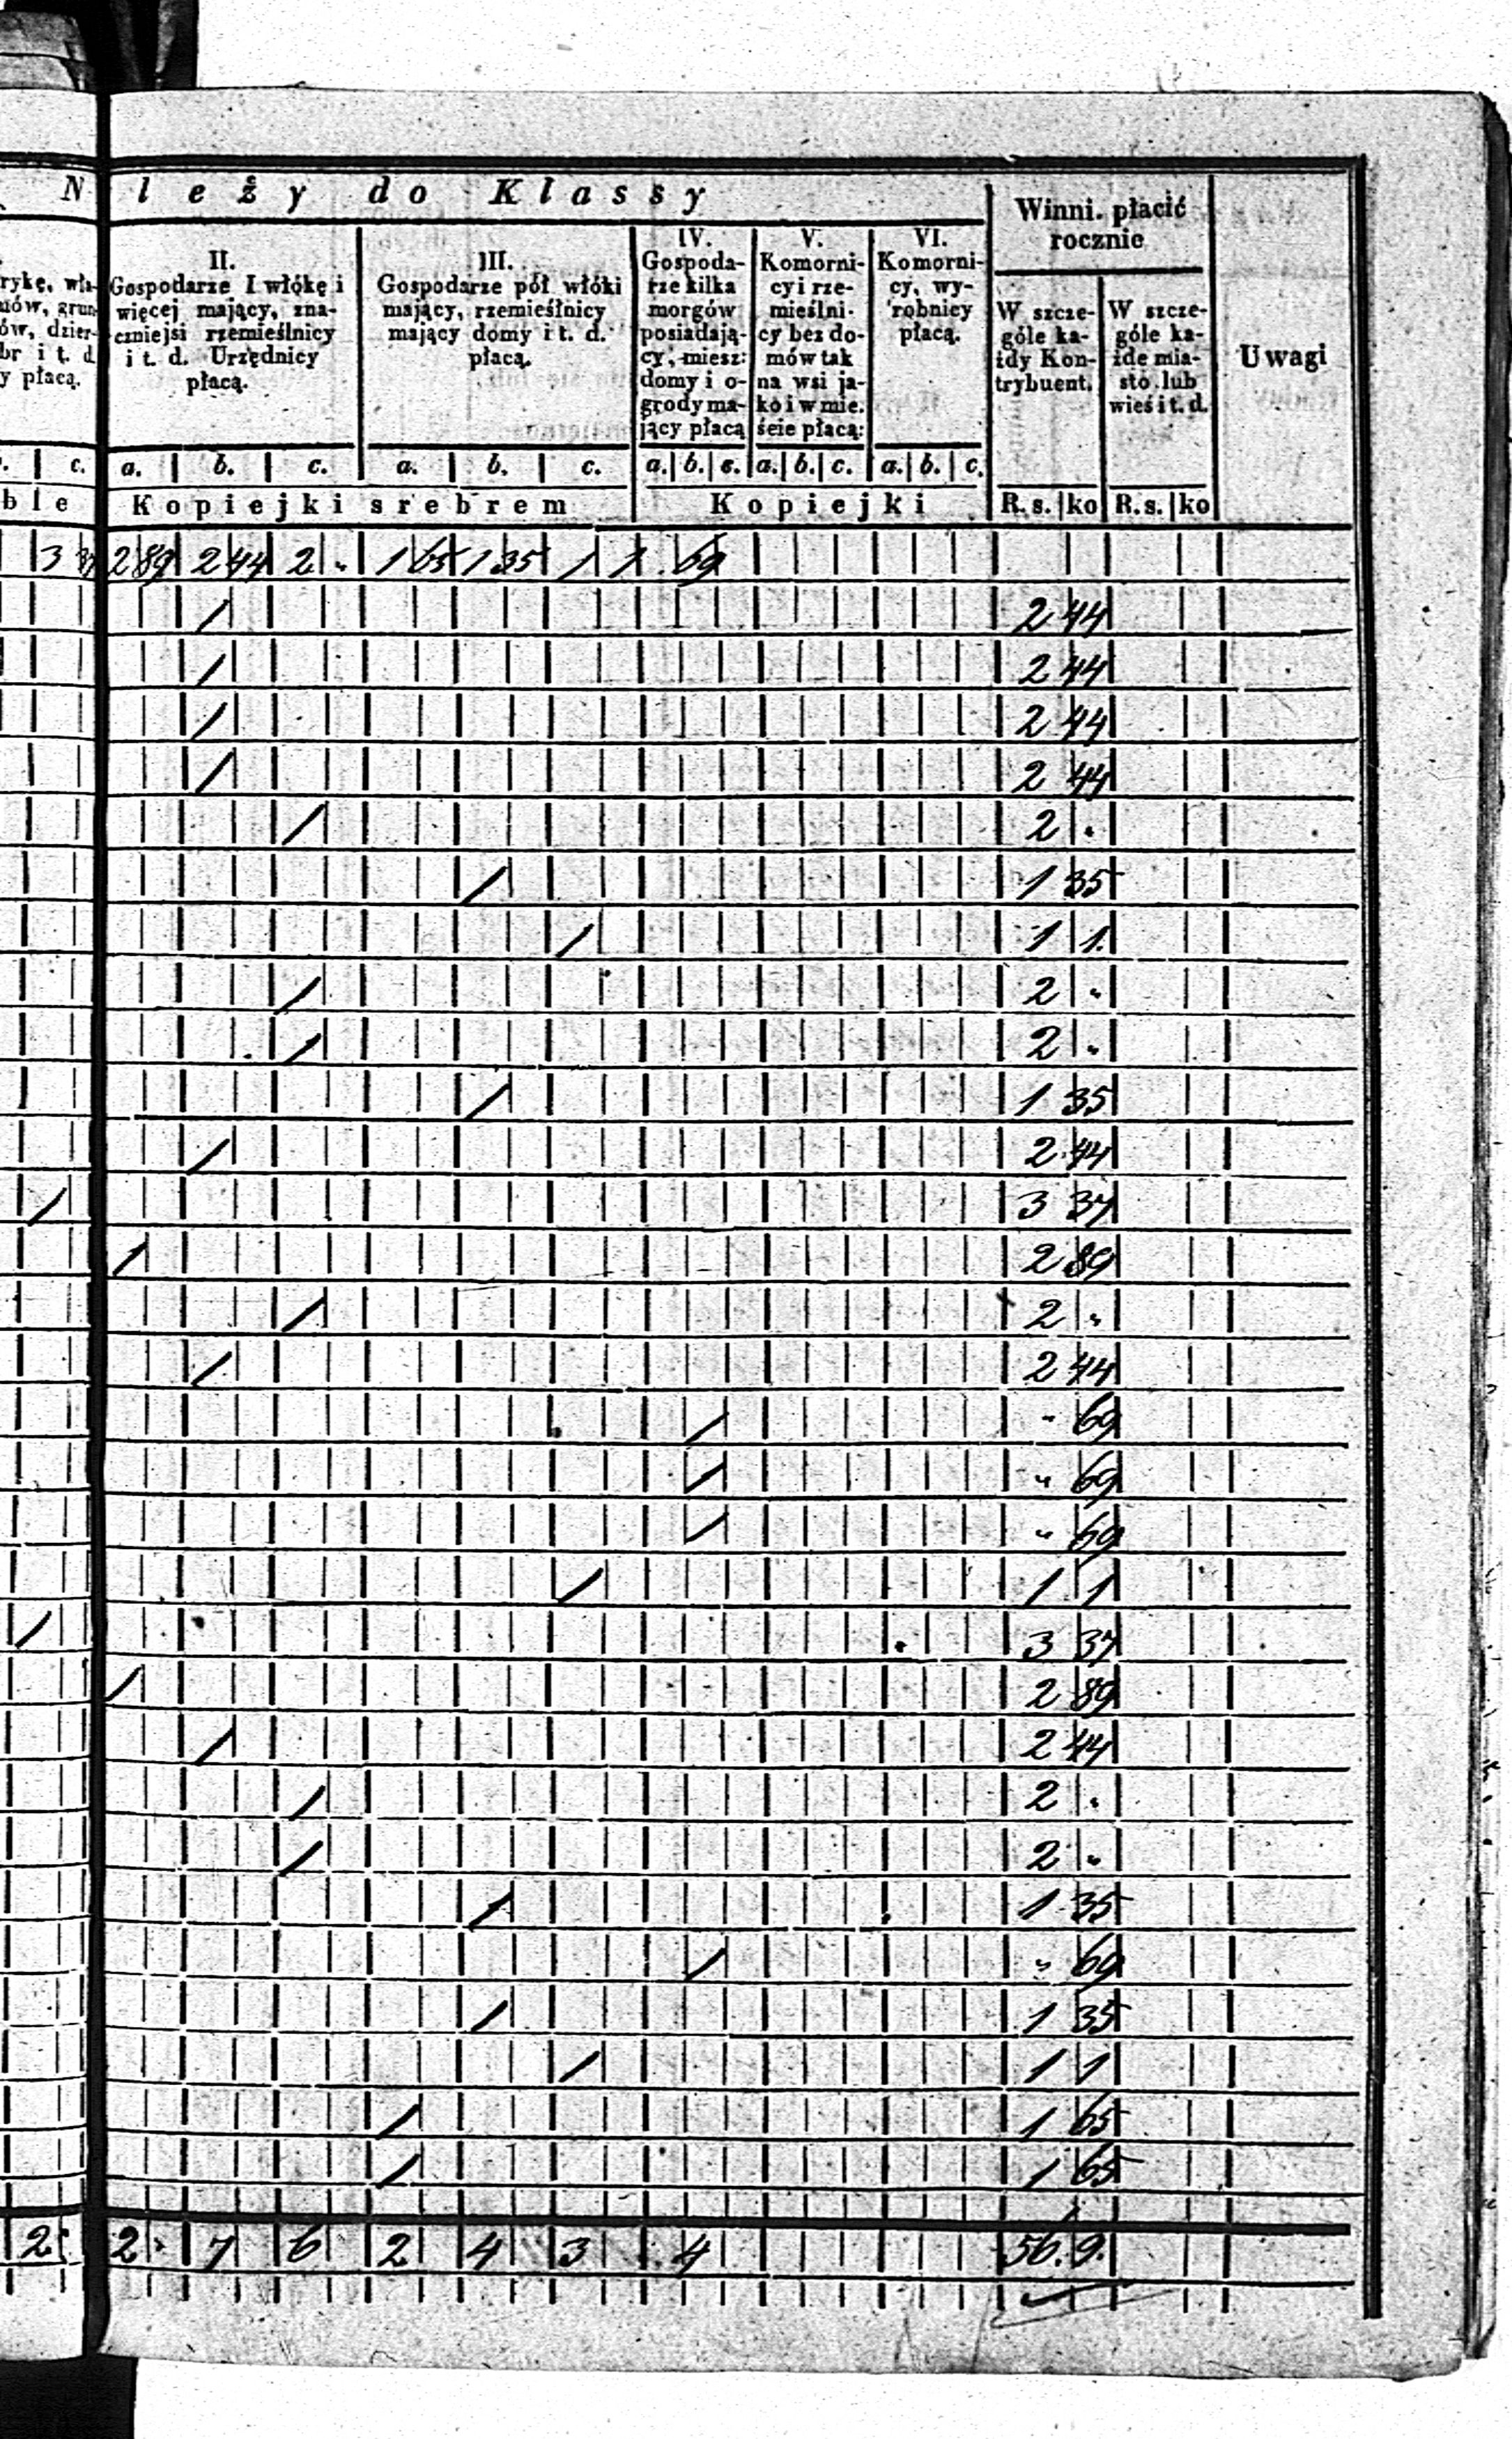 N l e ż y d o K l a s s y
Winni. płacić
rocznie
Uwagi
rykę, wła-
nów, grun-
ów, dzier-
br i t. d.
y płacą.
II.
Gospodarze I włókę i
więcej mający, zna-
czniejsi rzemieślnicy
i t. d. Urzędnicy
płacą.
III.
Gospodarze pół włóki
mający, rzemieślnicy
mający domy i t. d.
płacą.
IV.
Gospoda-
rze kilka
morgów
posiadają-
cy, miesz:
domy i o-
grody ma-
jący płacą
V.
Komorni-
cy i rze-
mieślni-
cy bez do-
mów tak
na wsi ja-
ko i w mie.
ście płacą:
VI.
Komorni-
cy, wy-
robnicy
płacą.
W szcze-
góle ka-
żdy Kon-
trybuent.
W szcze-
góle ka-
żde mia-
sto lub
wieś i t. d.
c. a. b. c. a. b. c. a. b. c. a. b. c. a. b. c.
ble K o p i e j k i s r e b r e m K o p i e j k i R. s. ko R. s. ko
3 37 2 89 2 44 2 " 1 65 1 35 1 1 . 69
/ 2 44
/ 2 44
/ 2 44
/ 2 44
/ 2 "
/ 1 35
/ 1 1.
/ 2 "
/ 2 "
/ 1 35
/ 2 44
/ 3 37
/ 2 89
/ 2 "
/ 2 44
/ " 69
/ " 69
/ " 69
/ 1 1
/ 3 37
/ 2 89
/ 2 44
/ 2 "
/ 2 "
/ 1 35
/ " 69
/ 1 35
/ 1 1
/ 1 65
/ 1 65
2 2 7 6 2 4 3 4 56. 9.